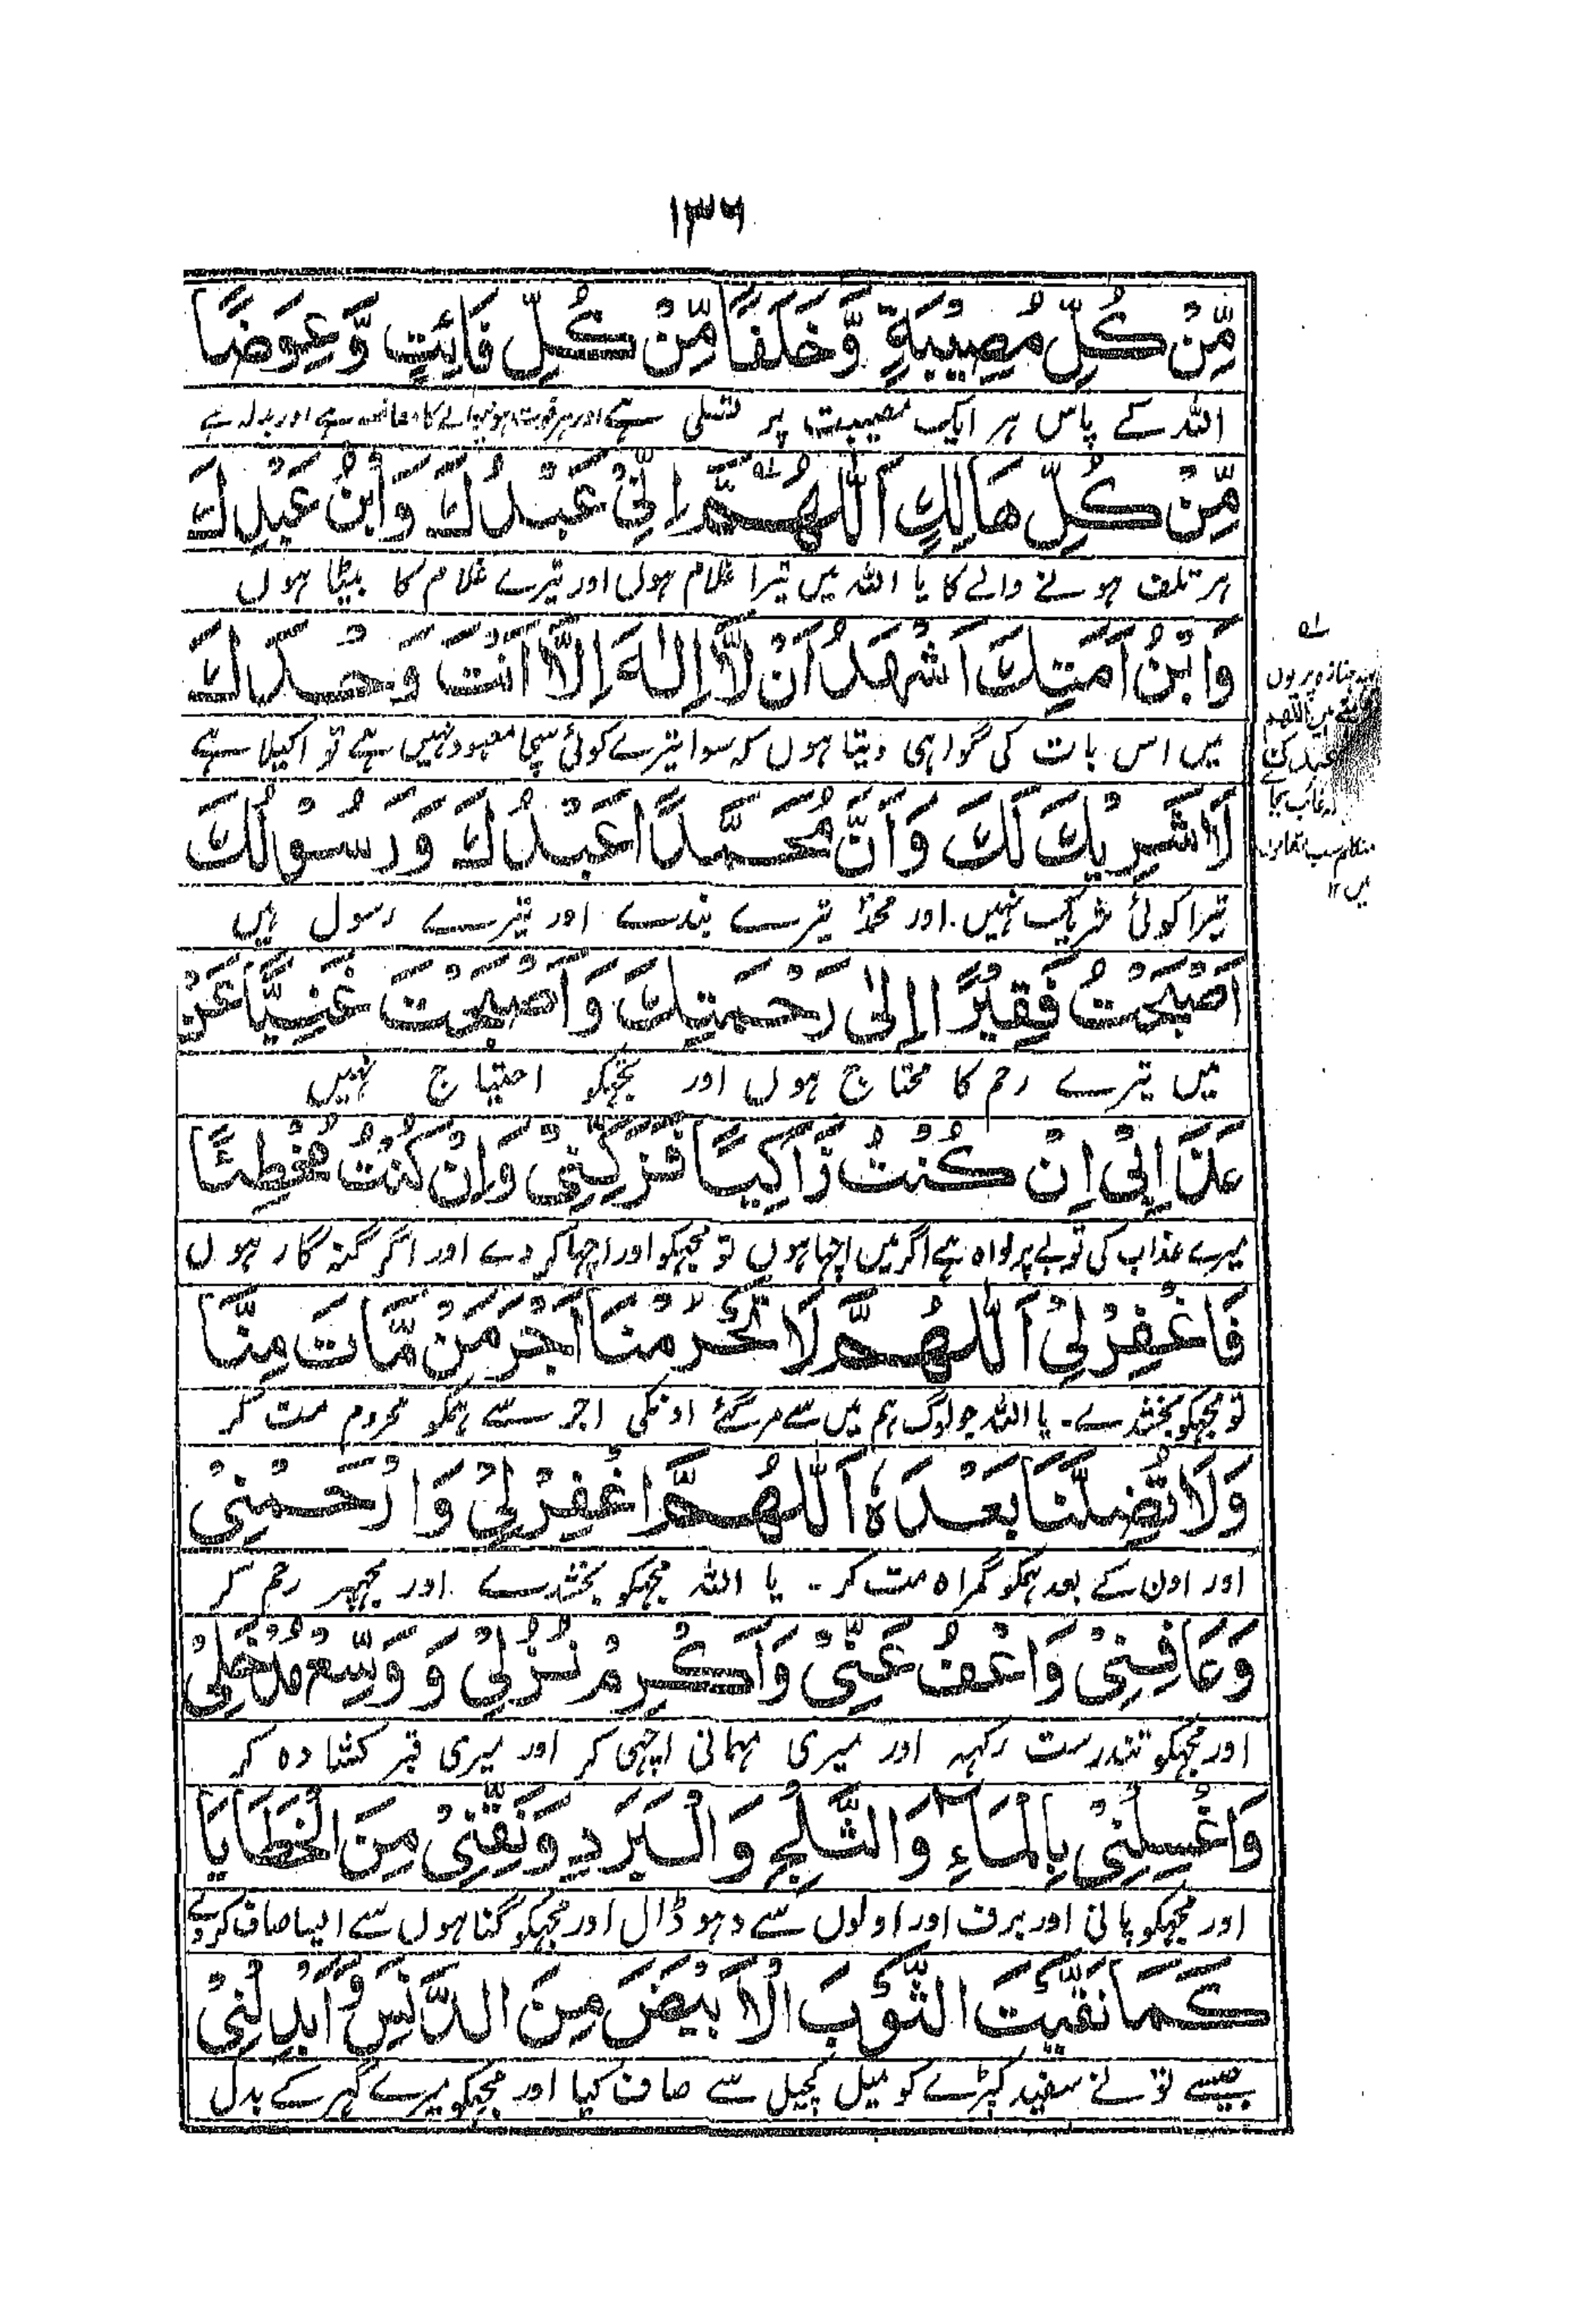 ۱۳۶
مِّنْ كُلِّ مُصِيْبَةٍ وَّخَلَفًا مِّنْ كُلِّ فَائِتٍ وَّعِوَضًا
اللہ کے پاس ہر ایک مصیبت پر تسلی ہے اور ہر فوت ہونیوالے کا معاوضہ ہے اور بدلہ ہے
مِّنْ كُلِّ هَالِكٍ اَللّٰهُمَّ اِنِّیْ عَبْدُكَ وَابْنُ عَبْدِكَ
ہر تلف ہونے والے کا یا اللہ میں تیرا غلام ہوں اور تیرے غلام کا بیٹا ہوں
وَابْنُ اَمَتِكَ اَشْهَدُ اَنْ لَّا اِلٰهَ اِلَّا اَنْتَ وَحْدَكَ
میں اس بات کی گواہی دیتا ہوں کہ سوا تیرے کوئی سچا معبود نہیں ہے تو اکیلا ہے
لَا شَرِيْكَ لَكَ وَاَنَّ مُحَمَّدًا عَبْدُكَ وَرَسُوْلُكَ
تیرا کوئی شریک نہیں۔ اور محمدؐ تیرے بندے اور تیرے رسول ہیں
اَصْبَحْتُ فَقِيْرًا اِلٰى رَحْمَتِكَ وَاَصْبَحْتَ غَنِيًّا عَنْ
میں تیرے رحم کا محتاج ہوں اور تجھکو احتیاج نہیں
عَذَابِیْ اِنْ كُنْتُ زَاكِيًا فَزَكِّنِیْ وَاِنْ كُنْتُ مُخْطِئًا
میرے عذاب کی تو بے پرواہ ہے اگر میں اچھا ہوں تو مجھکو اور اچھا کر دے اور اگر گنہ گار ہوں
فَاغْفِرْ لِیْ اَللّٰهُمَّ لَا تَحْرِمْنَا اَجْرَ مَنْ مَّاتَ مِنَّا
تو مجھکو بخشدے۔ یا اللہ جو لوگ ہم میں سے مر گئے اونکی اجر سے ہمکو محروم مت کر
وَلَا تُضِلَّنَا بَعْدَهٗ اَللّٰهُمَّ اغْفِرْ لِیْ وَارْحَمْنِیْ
اور اون کے بعد ہمکو گمراہ مت کر۔ یا اللہ مجھکو بخشدے اور مجھپر رحم کر
وَعَافِنِیْ وَاعْفُ عَنِّیْ وَاَكْرِمْ نُزُلِیْ وَوَسِّعْ مُدْخَلِیْ
اور مجھکو تندرست رکھہ اور میری مہمانی اچھی کر اور میری قبر کشادہ کر
وَاغْسِلْنِیْ بِالْمَاءِ وَالثَّلْجِ وَالْبَرَدِ وَنَقِّنِیْ مِنَ الْخَطَايَا
اور مجھکو پانی اور برف اور اولوں سے دہو ڈال اور مجھکو گناہوں سے ایسا صاف کر دے
كَمَا نَقَّيْتَ الثَّوْبَ الْاَبْيَضَ مِنَ الدَّنَسِ وَاَبْدِلْنِیْ
جیسے تونے سفید کپڑے کو میل کچیل سے صاف کیا اور مجھکو میرے گھر کے بدل